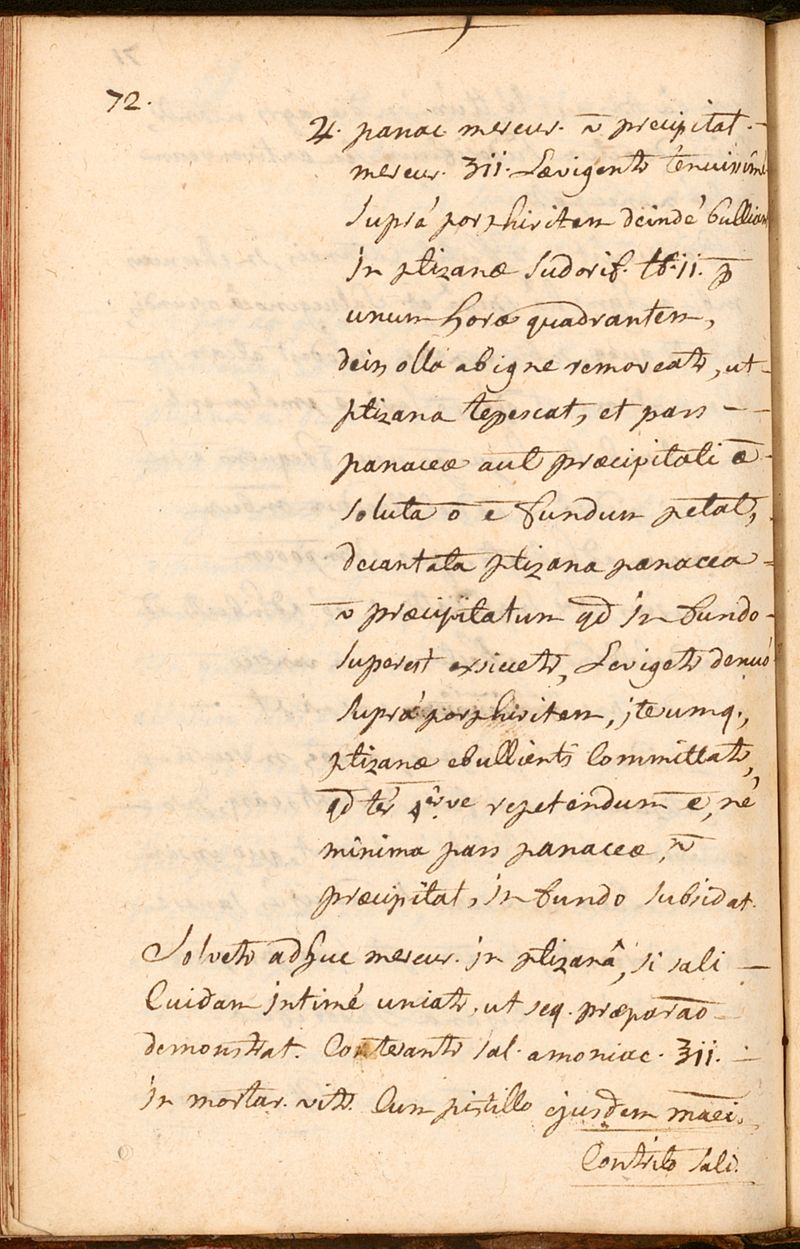 72.
♃. panac mercur. v̄ precipitat.-
mercur. ʒii. Lævigentr tenuissimè
Suprá porphiritem deindé bulliant
in ptizanæ Sudorif. ℔.ii. p̄
unum horæ quadrantem,
dein olla ab igne removeatr, ut-
ptizana tepescat, et pars - -
panaceæ aut præcipitati ē
soluta ō ē fundum petat,
decantata ptizana panacea -
v̄ præcipitatum qd in fundo-
superest exsiccetr, Levigetr denuó
Suprá porphiritem, iterumq.,
ptizanæ ebullienti Committatr,
qd tér 4èr.ve repetendum ē, né
minima pars panaceæ, v̄
præcipitat, in fundo subsidat.
Solvetr adhuc mercur. in ptizanâ, si sali —
Cuidam intimé uniatr, ut seq. præparāo
demonstrat. Conterantr sal. amoniac. ʒii. -
in mortar. vitr. Cum pistillo ejusdem māei.
Contrito sali.